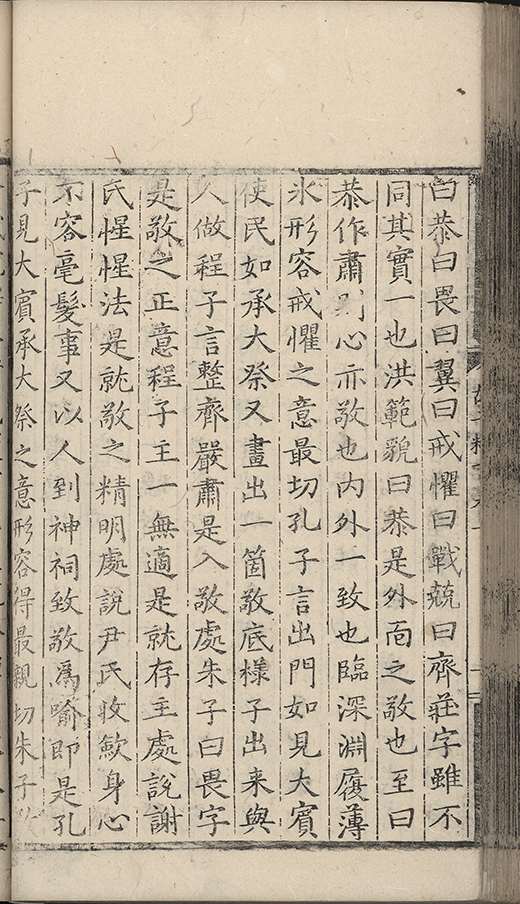 曰恭曰畏曰翼曰戒懼曰戰兢曰齊莊字雖不
同其實一也洪範貌曰恭是外靣之敬也至曰
恭作肅則心亦敬也内外一致也臨深淵履薄
氷形容戒懼之意最切孔子言出門如見大賓
使民如承大祭又畫出一箇敬底樣子出来與
人做程子言整齊嚴肅是入敬處朱子曰畏字
是敬之正意程子主一無適是就存主處說謝
氏惺惺法是就敬之精明處說尹氏收歛身心
不容毫髮事又以人到神祠致敬爲喻即是孔
子見大賓承大祭之意形容得最親切朱子